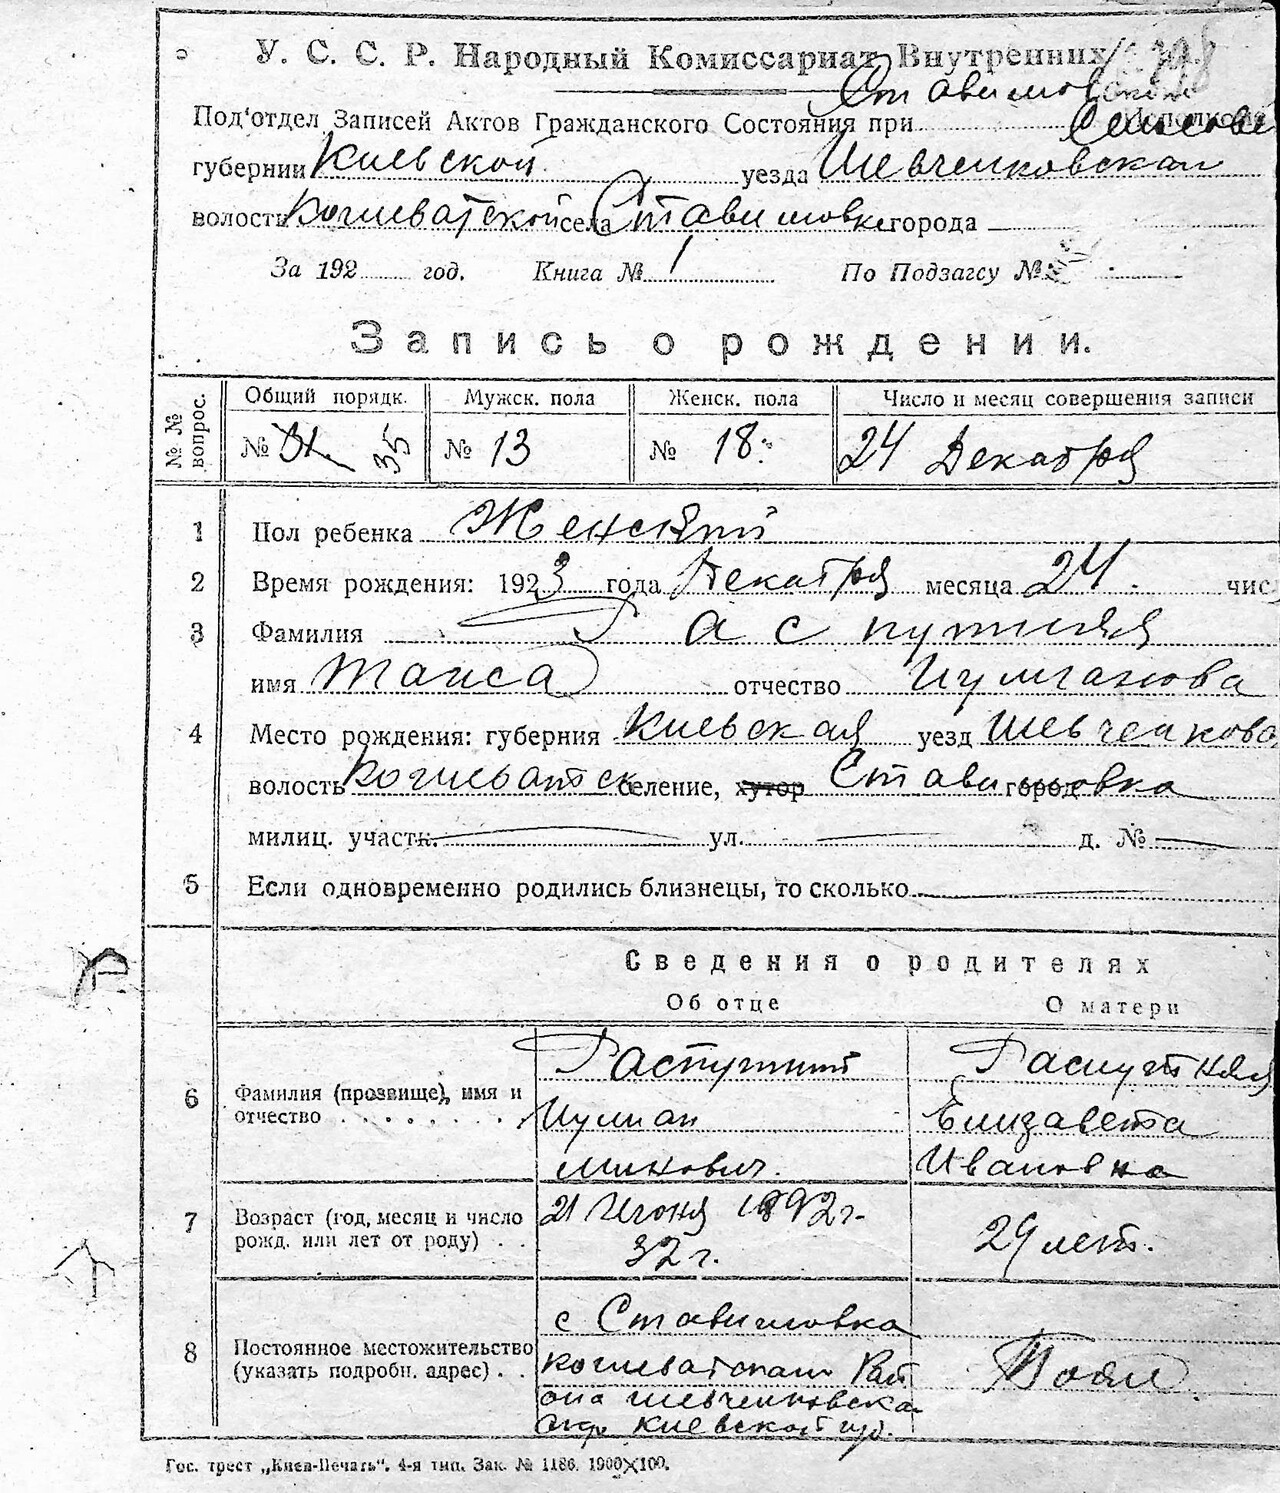 У. С. С. Р. Народный Комиссариат Внутренних
Под'отдел Записей Актов Гражданского Состояния при
губернии Киевской уезда Шевченковская
волости села Ставишовке города
За 192 год. Книга № 1 По Подзагсу №
Запись о рождении.
№ № вопрос. Общий порядк. Мужск. пола Женск. пола Число и месяц совершения записи
№ 35 № 13 № 18 24 Декабря
1 Пол ребенка Женский
2 Время рождения: 1923 года Декабря месяца 24 чис
3 Фамилия Распутняя
имя Таиса отчество
4 Место рождения: губерния Киевская уезд Шевченков
волость селение, хутор Ставишовка город
милиц. участк. ул. д. №
5 Если одновременно родились близнецы, то сколько
Сведения о родителях
Об отце О матери
Распутний Распутняя
6 Фамилия (прозвище), имя и Иулиан Елизавета
отчество Ивановна
7 Возраст (год, месяц и число 21 Июня 1892 г.
рожд. или лет от роду) 32 г. 29 лет.
с Ставишовка
8 Постоянное местожительство
(указать подробн. адрес)
Киевской губ.
Гос. трест „Киев-Печать“. 4-я тип. Зак. № 1186. 1900×100.